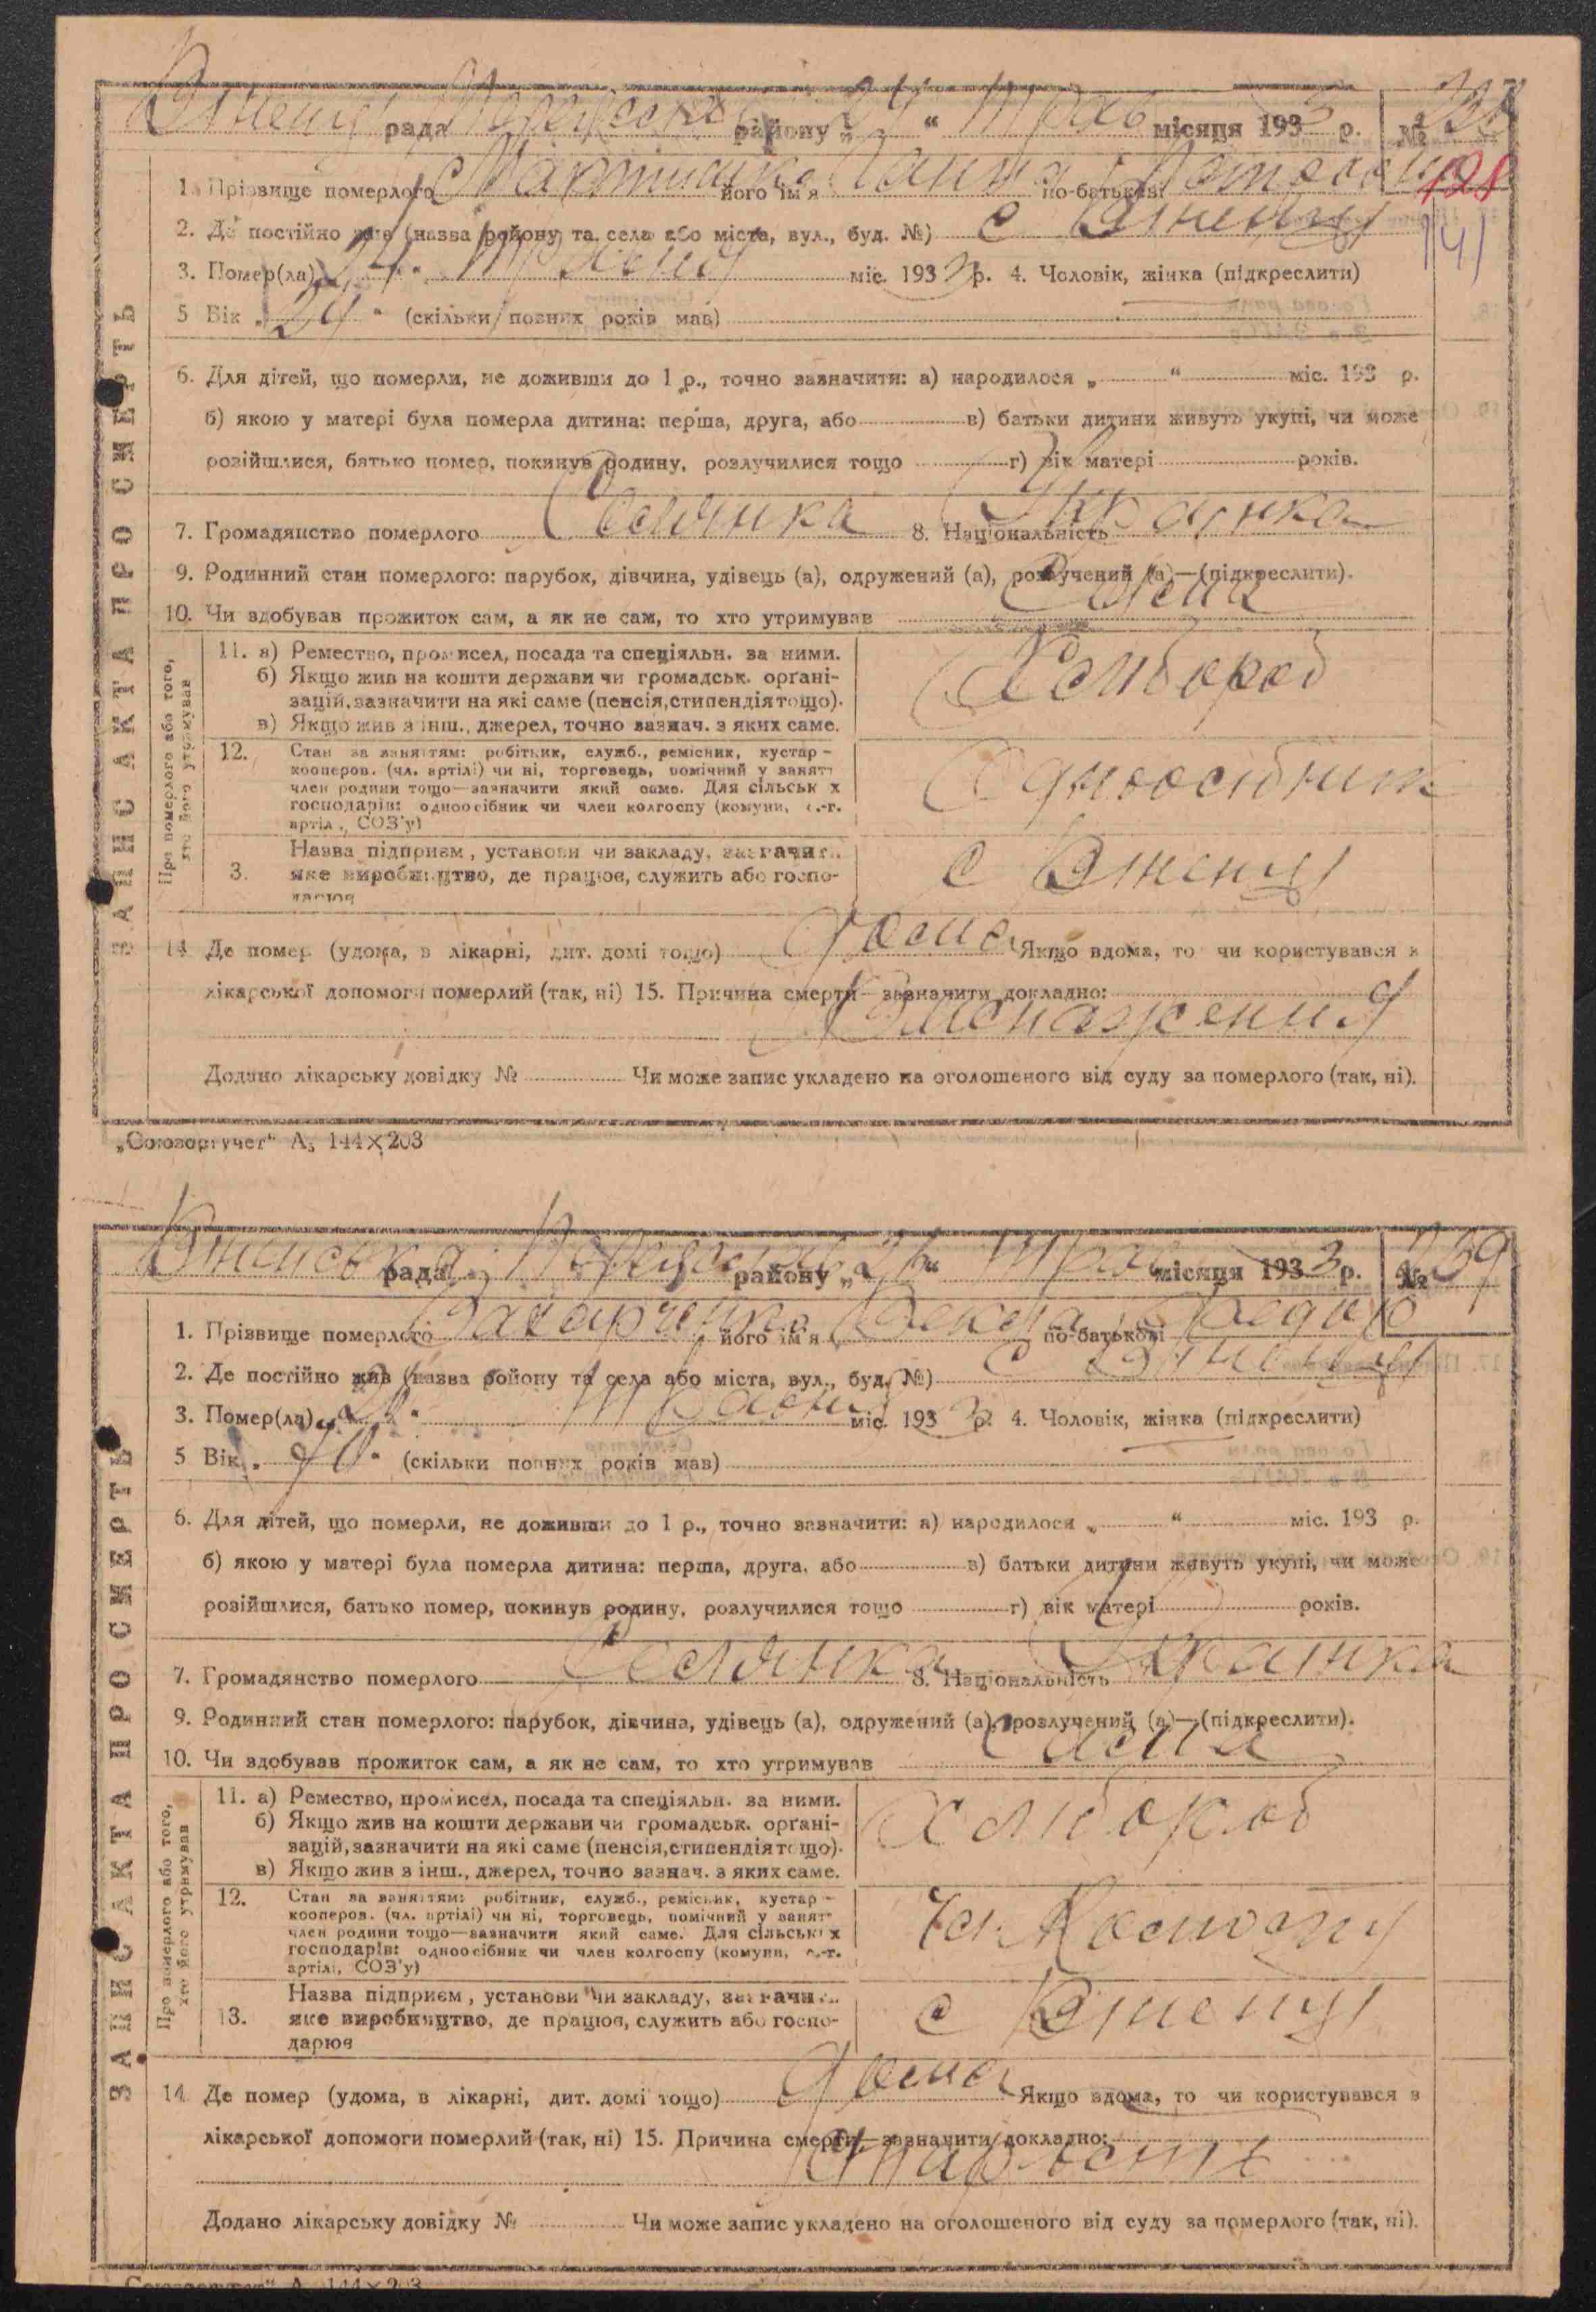 рада району „ “ місяця 1933 р. №
128
141
ЗАПИС АКТА ПРО СМЕРТЬ
1. Прізвище померлого його ім'я Ганна по-батькові
2. Де постійно жив (назва району та села або міста, вул., буд. №) с
3. Помер(ла) „24“ міс. 1933 р. 4. Чоловік, жінка (підкреслити)
5 Вік „24“ (скільки повних років мав)
6. Для дітей, що померли, не доживши до 1 р., точно зазначити: а) народилося „ “ міс. 193 р.
б) якою у матері була померла дитина: перша, друга, або в) батьки дитини живуть укупі, чи може
розійшлися, батько помер, покинув родину, розлучилися тощо г) вік матері років.
7. Громадянство померлого Селянка 8. Національність Українка
9. Родинний стан померлого: парубок, дівчина, удівець (а), одружений (а), розлучений (а)—(підкреслити).
10. Чи здобував прожиток сам, а як не сам, то хто утримував Сама
Про померлого або того, хто його утримував
11. а) Ремество, промисел, посада та спеціяльн. за ними.
б) Якщо жив на кошти держави чи громадськ. органі-
зацій, зазначити на які саме (пенсія, стипендія тощо).
в) Якщо жив з інш., джерел, точно зазнач. з яких саме.
Хлібороб
12. Стан за заняттям: робітник, служб., ремісник, кустар -
кооперов. (чл. артілі) чи ні, торговець, помічний у занят
член родини тощо—зазначити який саме. Для сільськ х
господарів: одноосібник чи член колгоспу (комуни, с.-г.
артілі, СОЗ'у)
Одноосібник
3. Назва підприєм, установи чи закладу, зазначити
яке виробництво, де працює, служить або госпо-
дарює
с
14 Де помер (удома, в лікарні, дит. домі тощо) Дома Якщо вдома, то чи користувався з
лікарської допомоги померлий (так, ні) 15. Причина смерти—зазначити докладно:
Додано лікарську довідку № Чи може запис укладено на оголошеного від суду за померлого (так, ні).
„Союзоргучет“ А5 144×203
рада району „ “ місяця 1933 р. №
ЗАПИС АКТА ПРО СМЕРТЬ
1. Прізвище померлого Захарченко його ім'я по-батькові
2. Де постійно жив (назва району та села або міста, вул., буд. №) с
3. Помер(ла) міс. 1933 р. 4. Чоловік, жінка (підкреслити)
5 Вік „70“ (скільки повних років мав)
6. Для дітей, що померли, не доживши до 1 р., точно зазначити: а) народилося „ “ міс. 193 р.
б) якою у матері була померла дитина: перша, друга, або в) батьки дитини живуть укупі, чи може
розійшлися, батько помер, покинув родину, розлучилися тощо г) вік матері років.
7. Громадянство померлого Селянка 8. Національність Українка
9. Родинний стан померлого: парубок, дівчина, удівець (а), одружений (а), розлучений (а)—(підкреслити).
10. Чи здобував прожиток сам, а як не сам, то хто утримував Сама
Про померлого або того, хто його утримував
11. а) Ремество, промисел, посада та спеціяльн. за ними.
б) Якщо жив на кошти держави чи громадськ. органі-
зацій, зазначити на які саме (пенсія, стипендія тощо).
в) Якщо жив з інш., джерел, точно зазнач. з яких саме.
Хлібороб
12. Стан за заняттям: робітник, служб., ремісник, кустар -
кооперов. (чл. артілі) чи ні, торговець, помічний у занят
член родини тощо—зазначити який саме. Для сільськ х
господарів: одноосібник чи член колгоспу (комуни, с.-г.
артілі, СОЗ'у)
Чл. Колгоспу
13. Назва підприєм, установи чи закладу, зазначити
яке виробництво, де працює, служить або госпо-
дарює
с
14 Де помер (удома, в лікарні, дит. домі тощо) Дома Якщо вдома, то чи користувався з
лікарської допомоги померлий (так, ні) 15. Причина смерти—зазначити докладно:
Додано лікарську довідку № Чи може запис укладено на оголошеного від суду за померлого (так, ні).